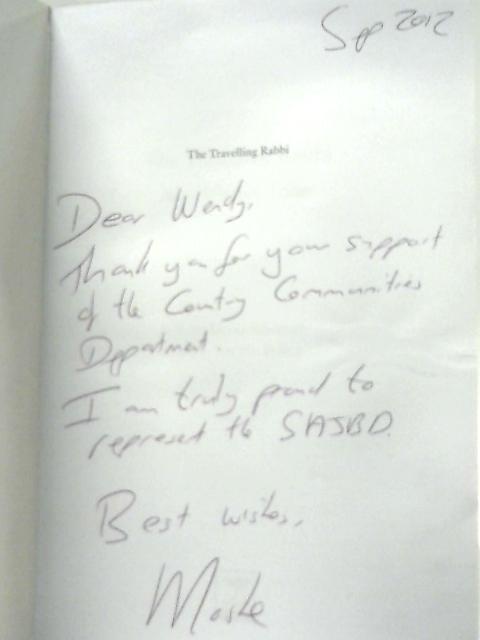 Sep 2012
The Travelling Rabbi
Dear Wendy,
Thank you for your support
of the Country Communities
Department.
I am truly proud to
represent the SAJBD.
Best wishes,
Moshe